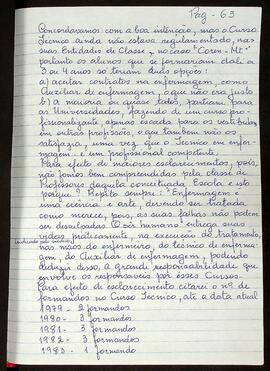 Pag - 63
Concordávamos com a boa intenção, mas o Curso
Tecnico ainda não estava regulamentado, nas
suas Entidades de Classe, no caso "Coren - Mt"
portanto os alunos que se formariam dali a
3 ou 4 anos só teriam duas opções:
a) aceitar contratos na enfermagem, como
Auxiliar de enfermagem, o que não era justo
b) a maioria ou quase todos, partiam para
as Universidades, fazendo de um curso pro-
fissionalizante apenas escada para os vestibulares
em outras profissões, o que também não os
satisfazia, uma vez que o Tecnico em Enfer-
magem é um profissional competente.
Para efeito de maiores esclarecimentos, pois,
não fomos bem compreendidas pela classe de
Professores daquela conceituada Escola e isto
porque? Repito sempre: "Enfermagem é
uma ciência e arte, devendo ser tratada
como merece, pois, as suas falhas não podem
ser desculpadas. O ser humano entrega suas
vidas, praticamente, na execução do tratamento,
nas mãos do enfermeiro, do tecnico de enferma-
gem, do Auxiliar de enfermagem, podendo
deduzir disso, a grande responsabilidade que
envolve os responsáveis por esses Cursos.
Para efeito de esclarecimento citarei o nº de
formandos no Curso Tecnico, até a data atual
1979 - 2 formandos
1980 - 3 formandos
1981 - 3 formandos
1982 - 3 formandos
1983 - 1 formando